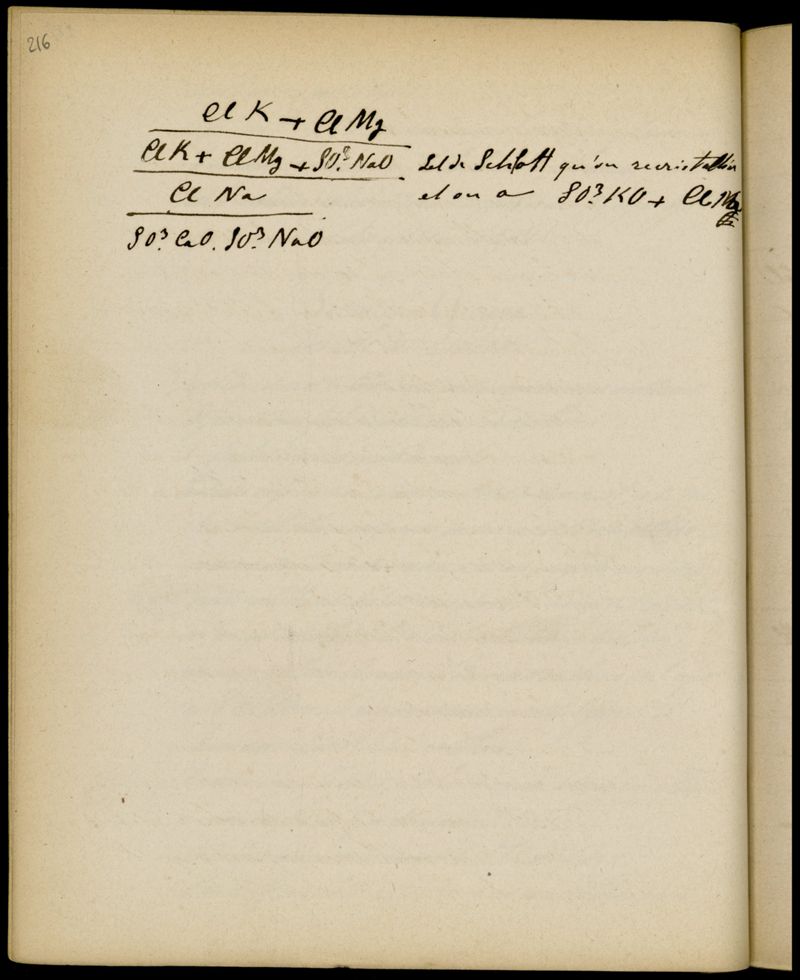 216
Cl K + Cl Mg
Cl K + Cl Mg + SO³. NaO Sel de Schlott qu'on recristallise
Cl Na et on a SO³. KO + Cl Mg
SO³. CaO. SO³. NaO